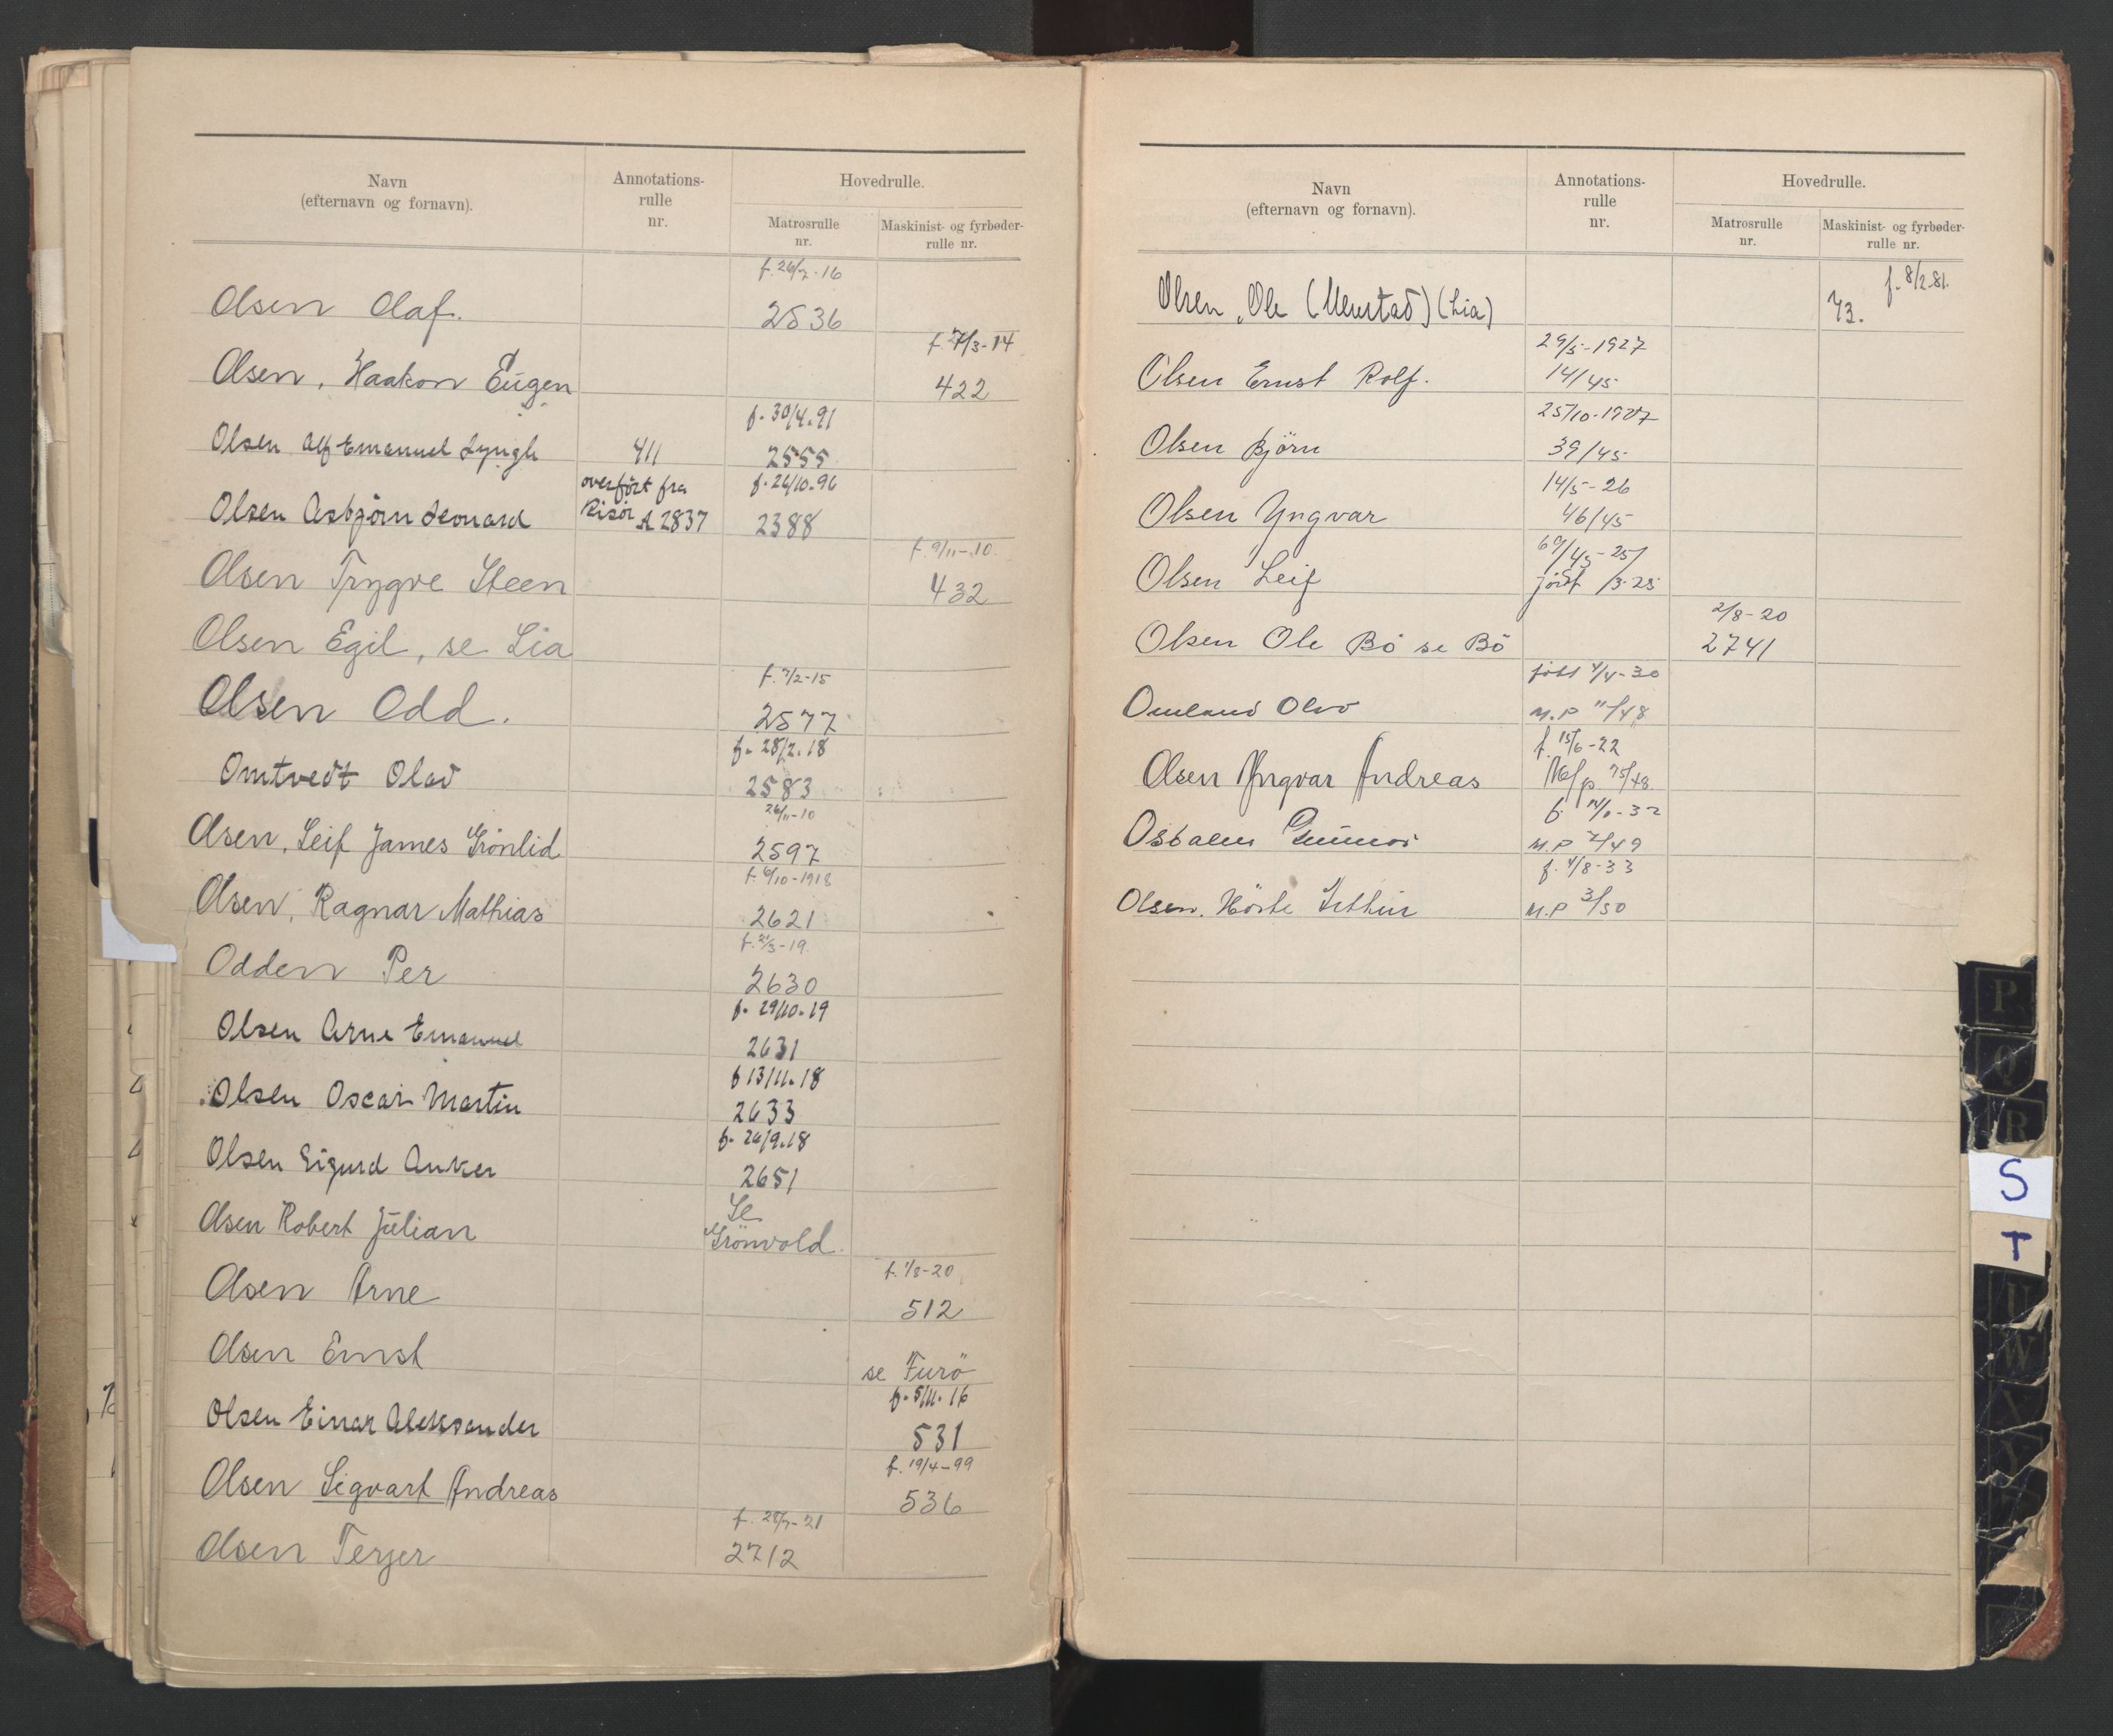 Navn
(efternavn og fornavn).
Annotations-
rulle
nr.
Hovedrulle.
Matrosrulle
nr.
Maskinist- og fyrbøder-
rulle nr.
f. 26/7-16
Olsen Olaf. 2536
f. 27/3-14
Olsen, Haakon Eugen 422
f. 30/4.91
Olsen Alf Emanuel Lyngh 411 2555
overført fra f. 26/10.96
Olsen Asbjørn Leonard Risør A 2837 2388
f. 9/11-10.
Olsen Trygve Steen 432
Olsen Egil, se Lia
f. 7/2-15
Olsen Odd. 2577
f. 28/2.18
Omtvedt Olav 2583
26/11-10
Olsen, Leif James Grönlid 2597
f. 6/10-1918
Olsen, Ragnar Mathias 2621
f. 21/3-19.
Odden Per 2630
f. 29/10.19
Olsen Arne Emanuel 2631
f 13/11.18
Olsen Oscar Martin 2633
f. 26/9.18
Olsen Sigurd Anker 2651
Se
Olsen Robert Julian Grönvold.
f. 1/8-20
Olsen Arne 512
Olsen Ernst se Furö
f. 5/11.16
Olsen Einar Aleksander 531
f. 19/4-99
Olsen Sigvart Andreas 536
f. 28/7-21
Olsen Terjer 2712
Navn
(efternavn og fornavn).
Annotations-
rulle
nr.
Hovedrulle.
Matrosrulle
nr.
Maskinist- og fyrbøder-
rulle nr.
f. 8/2.81.
Olsen, Ole (Menstad) (Lia) 73.
29/5-1927
Olsen Ernst Rolf. 14/45
25/10-1927
Olsen Björn 39/45
14/5-26
Olsen Yngvar 46/45
Olsen Leif
2/8-20
Olsen Ole Bö se Bö 2741
født 4/4-30
Omland Olav M.P 11/48
f. 15/6-22
Olsen Yngvar Andreas M/p 75/48
Osdalen Gunnar M.P 2/49
f. 4/8-33
Olsen, Höste M.P 3/50
P
Q
R
S
T
U
W